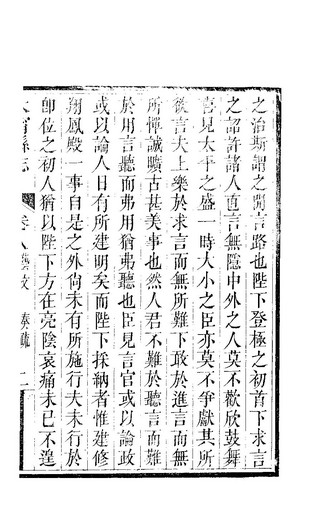 之治斯謂之開言路也陛下登極之初首下求言
之詔許諸人直言無隱中外之人莫不歡欣鼓舞
喜見太平之盛一時大小之臣亦莫不爭獻其所
欲言夫上樂於求言而無所難下敢於進言而無
所憚誠曠古甚美事也然人君不難於聽言而難
於用言聽而弗用猶弗聽也臣見言官或以論政
或以論人日有所建明矣而陛下採納者惟建修
翔鳳殿一事自是之外尚未有所施行夫未行於
卽位之初人猶以陛下方在亮陰哀痛未已不遑
縣志 卷八 藝文 奏疏 二